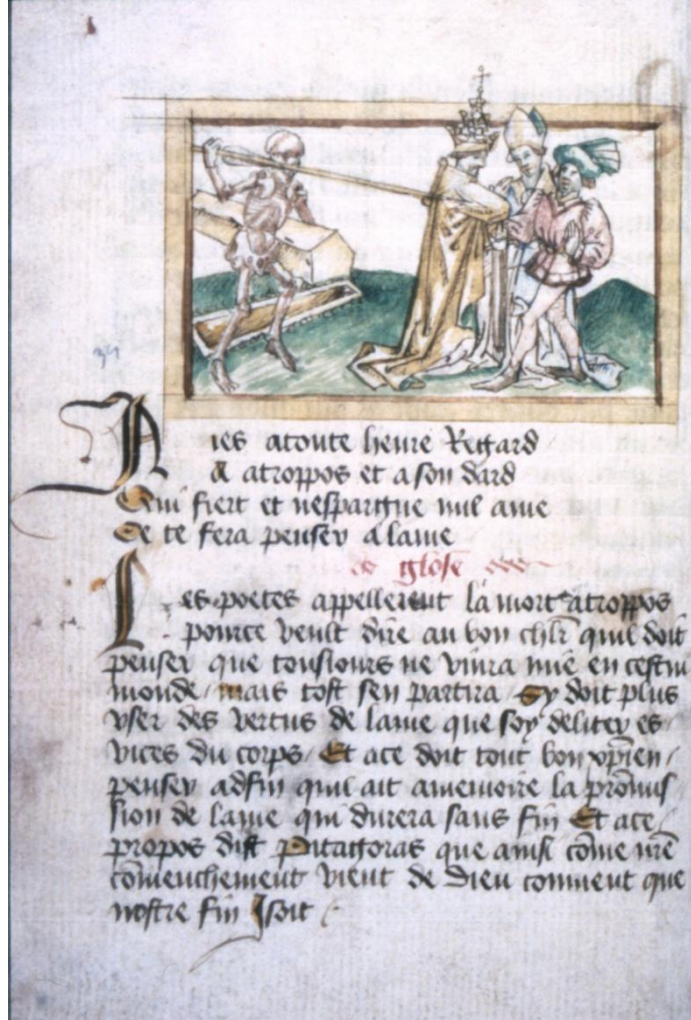 Aies atoute heure Regard
A atroppos et a son dard
Qui fiert et nespargne nulle ame
Ce te fera penser a lame
glose
Les poetes appellerent la mort atroppos
pource veult dire au bon chlr quil doit
penser que tousiours ne viura mie en cestui
monde / mais tost sen partira / sy doit plus
vser des vertus de lame que soy deliter es
vices du corps / Et ace doit tout bon xpien /
penser adfin quil ait amemoire la promis
sion de lame qui durera sans fin Et ace /
propos dist pitagoras que ainsi come nre
comenchement vient de dieu conuient que
nostre fin Isoit /